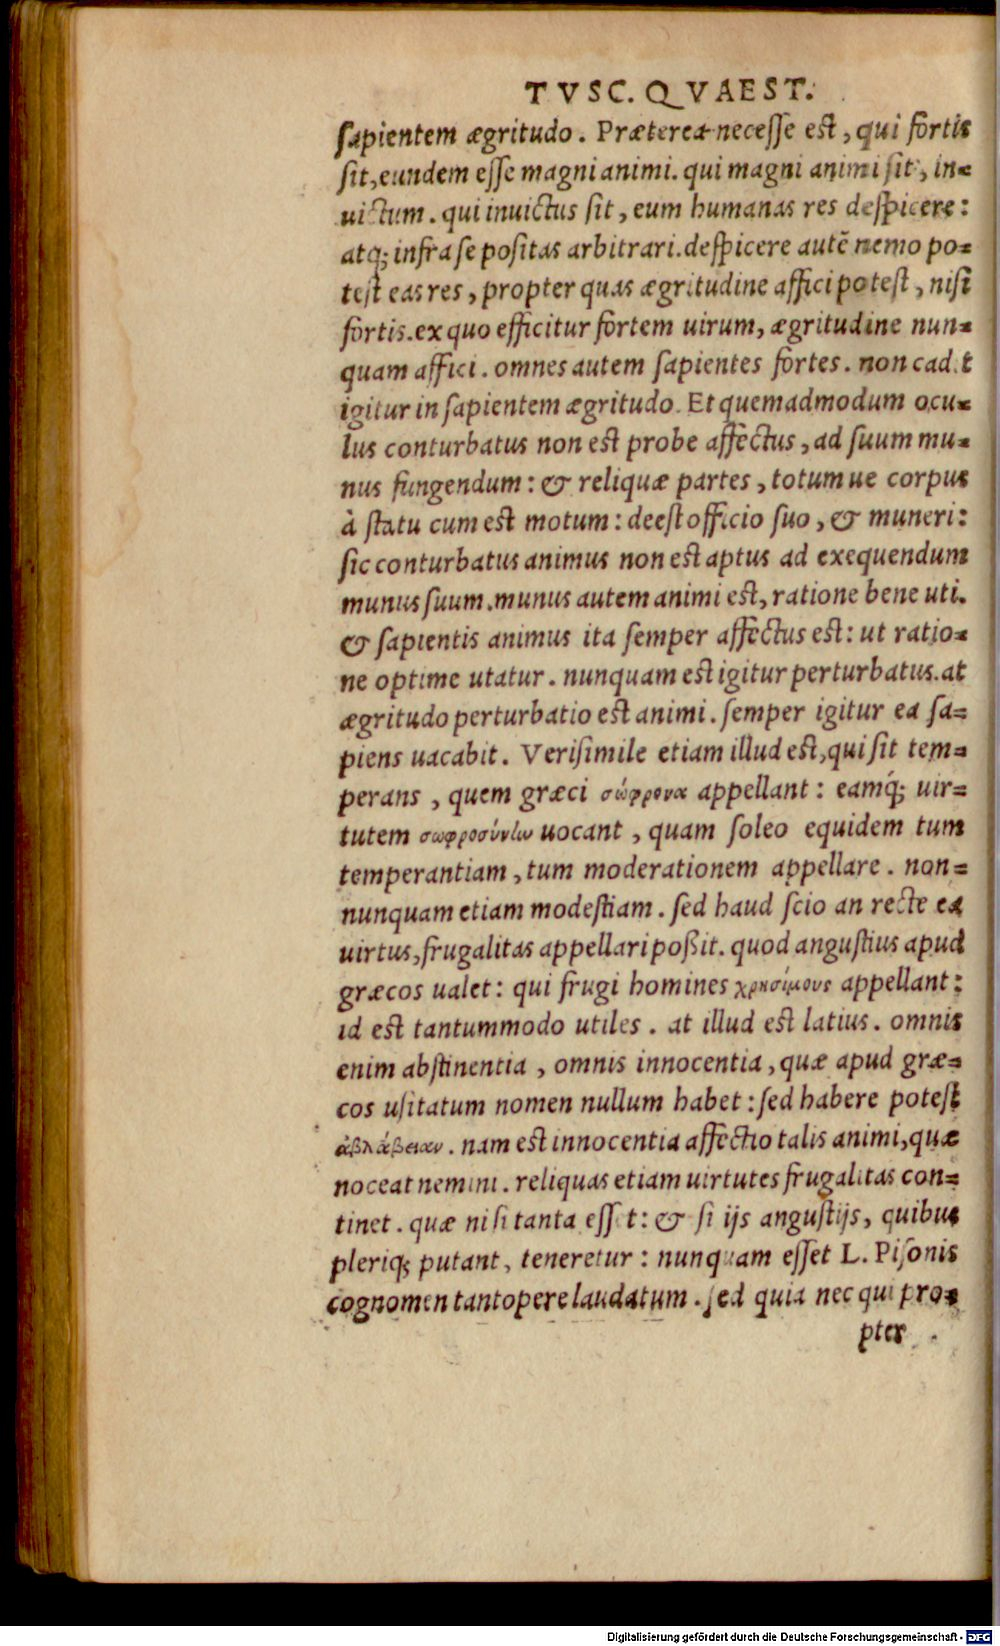 TVSC. QVAEST.
sapientem ægritudo. Præterea necesse est, qui fortis
sit, eundem esse magni animi. qui magni animi sit, in=
uictum. qui inuictus sit, eum humanas res despicere:
atq; infra se positas arbitrari. despicere autē nemo po=
test eas res, propter quas ægritudine affici potest, nisi
fortis. ex quo efficitur fortem uirum, ægritudine nun=
quam affici. omnes autem sapientes fortes. non cadit
igitur in sapientem ægritudo. Et quemadmodum ocu=
lus conturbatus non est probe affectus, ad suum mu=
nus fungendum: & reliquæ partes, totum ue corpus
à statu cum est motum: deest officio suo, & muneri:
sic conturbatus animus non est aptus ad exequendum
munus suum. munus autem animi est, ratione bene uti.
& sapientis animus ita semper affectus est: ut ratio=
ne optime utatur. nunquam est igitur perturbatus. at
ægritudo perturbatio est animi. semper igitur ea sa=
piens uacabit. Verisimile etiam illud est, qui sit tem=
perans, quem græci σώφρονα appellant: eamq́; uir=
tutem σωφροσύνην uocant, quam soleo equidem tum
temperantiam, tum moderationem appellare. non=
nunquam etiam modestiam. sed haud scio an recte ea
uirtus, frugalitas appellari poßit. quod angustius apud
græcos ualet: qui frugi homines χρησίμους appellant:
id est tantummodo utiles. at illud est latius. omnis
enim abstinentia, omnis innocentia, quæ apud græ=
cos usitatum nomen nullum habet: sed habere potest
ἀβλάβειαν. nam est innocentia affectio talis animi, quæ
noceat nemini. reliquas etiam uirtutes frugalitas con=
tinet. quæ nisi tanta esset: & si ijs angustijs, quibus
pleriq; putant, teneretur: nunquam esset L. Pisonis
cognomen tantopere laudatum. sed quia nec qui pro=
pter
Digitalisierung gefördert durch die Deutsche Forschungsgemeinschaft - DFG